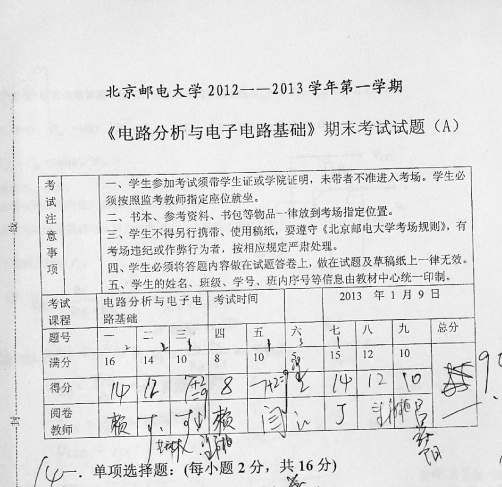 北京邮电大学 2012——2013 学年第一学期
《电路分析与电子电路基础》期末考试试题（A）
考试注意事项
一、学生参加考试须带学生证或学院证明，未带者不准进入考场。学生必
须按照监考教师指定座位就坐。
二、书本、参考资料、书包等物品一律放到考场指定位置。
三、学生不得另行携带、使用稿纸，要遵守《北京邮电大学考场规则》，有
考场违纪或作弊行为者，按相应规定严肃处理。
四、学生必须将答题内容做在试题答卷上，做在试题及草稿纸上一律无效。
五、学生的姓名、班级、学号、班内序号等信息由教材中心统一印制。
考试课程 电路分析与电子电路基础 考试时间 2013 年 1 月 9 日
题号 一 二 三 四 五 六 七 八 九 总分
满分 16 14 10 8 10 15 12 10
得分 14 12 7+2=9 8 7+2=9 14 12 10
阅卷教师 赖 赖 闫 江 丁
14 一. 单项选择题：(每小题 2 分，共 16 分)
封